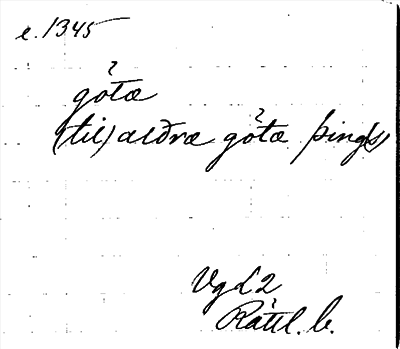 e. 1345
gòtæ
(til) alðræ gòtæ þing(s)
VgL 2
Rättl. b.